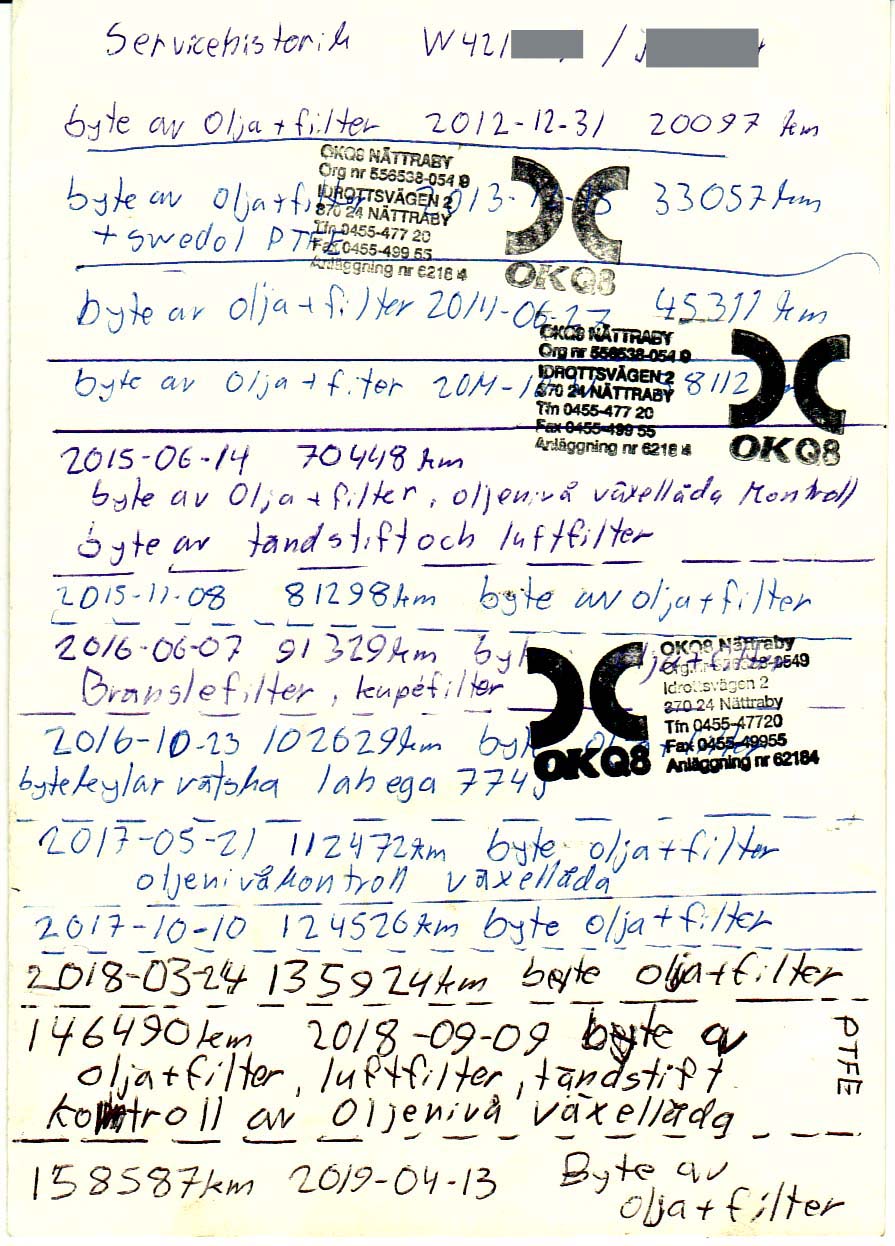 Servicehistorik W421 /
byte av olja + filter 2012-12-31 20097 km
OKQ8 NÄTTRABY
Org nr 556538-054 9
IDROTTSVÄGEN 2
370 24 NÄTTRABY
Tfn 0455-477 20
Fax 0455-499 55
Anläggning nr 6218 4
OKQ8
byte av olja + filter 2013-12- 33057 km
+ swedol PTFE
byte av olja + filter 2014-06-27 45311 km
OKQ8 NÄTTRABY
Org nr 556538-054 9
IDROTTSVÄGEN 2
370 24 NÄTTRABY
Tfn 0455-477 20
Fax 0455-499 55
Anläggning nr 6218 4
OKQ8
byte av olja + filter 8112
2015-06-14 70448 km
byte av olja + filter, oljenivå växellåda kontroll
byte av tändstift och luftfilter
2015-11-08 81298 km byte av olja + filter
2016-06-07 91329 km olja + filter
Bränslefilter, kupéfilter
OKQ8
OKQ8 Nättraby
Idrottsvägen 2
370 24 Nättraby
Tfn 0455-47720
Fax 0455-49955
Anläggning nr 62184
2016-10-23 102629 km
byte kylar vätska lahega 774
2017-05-21 112472 km byte olja + filter
oljenivåkontroll växellåda
2017-10-10 124526 km byte olja + filter
2018-03-24 135924 km byte olja + filter
146490 km 2018-09-09 byte av
olja + filter, luftfilter, tändstift
kontroll av oljenivå växellåda
PTFE
158587 km 2019-04-13 Byte av
olja + filter